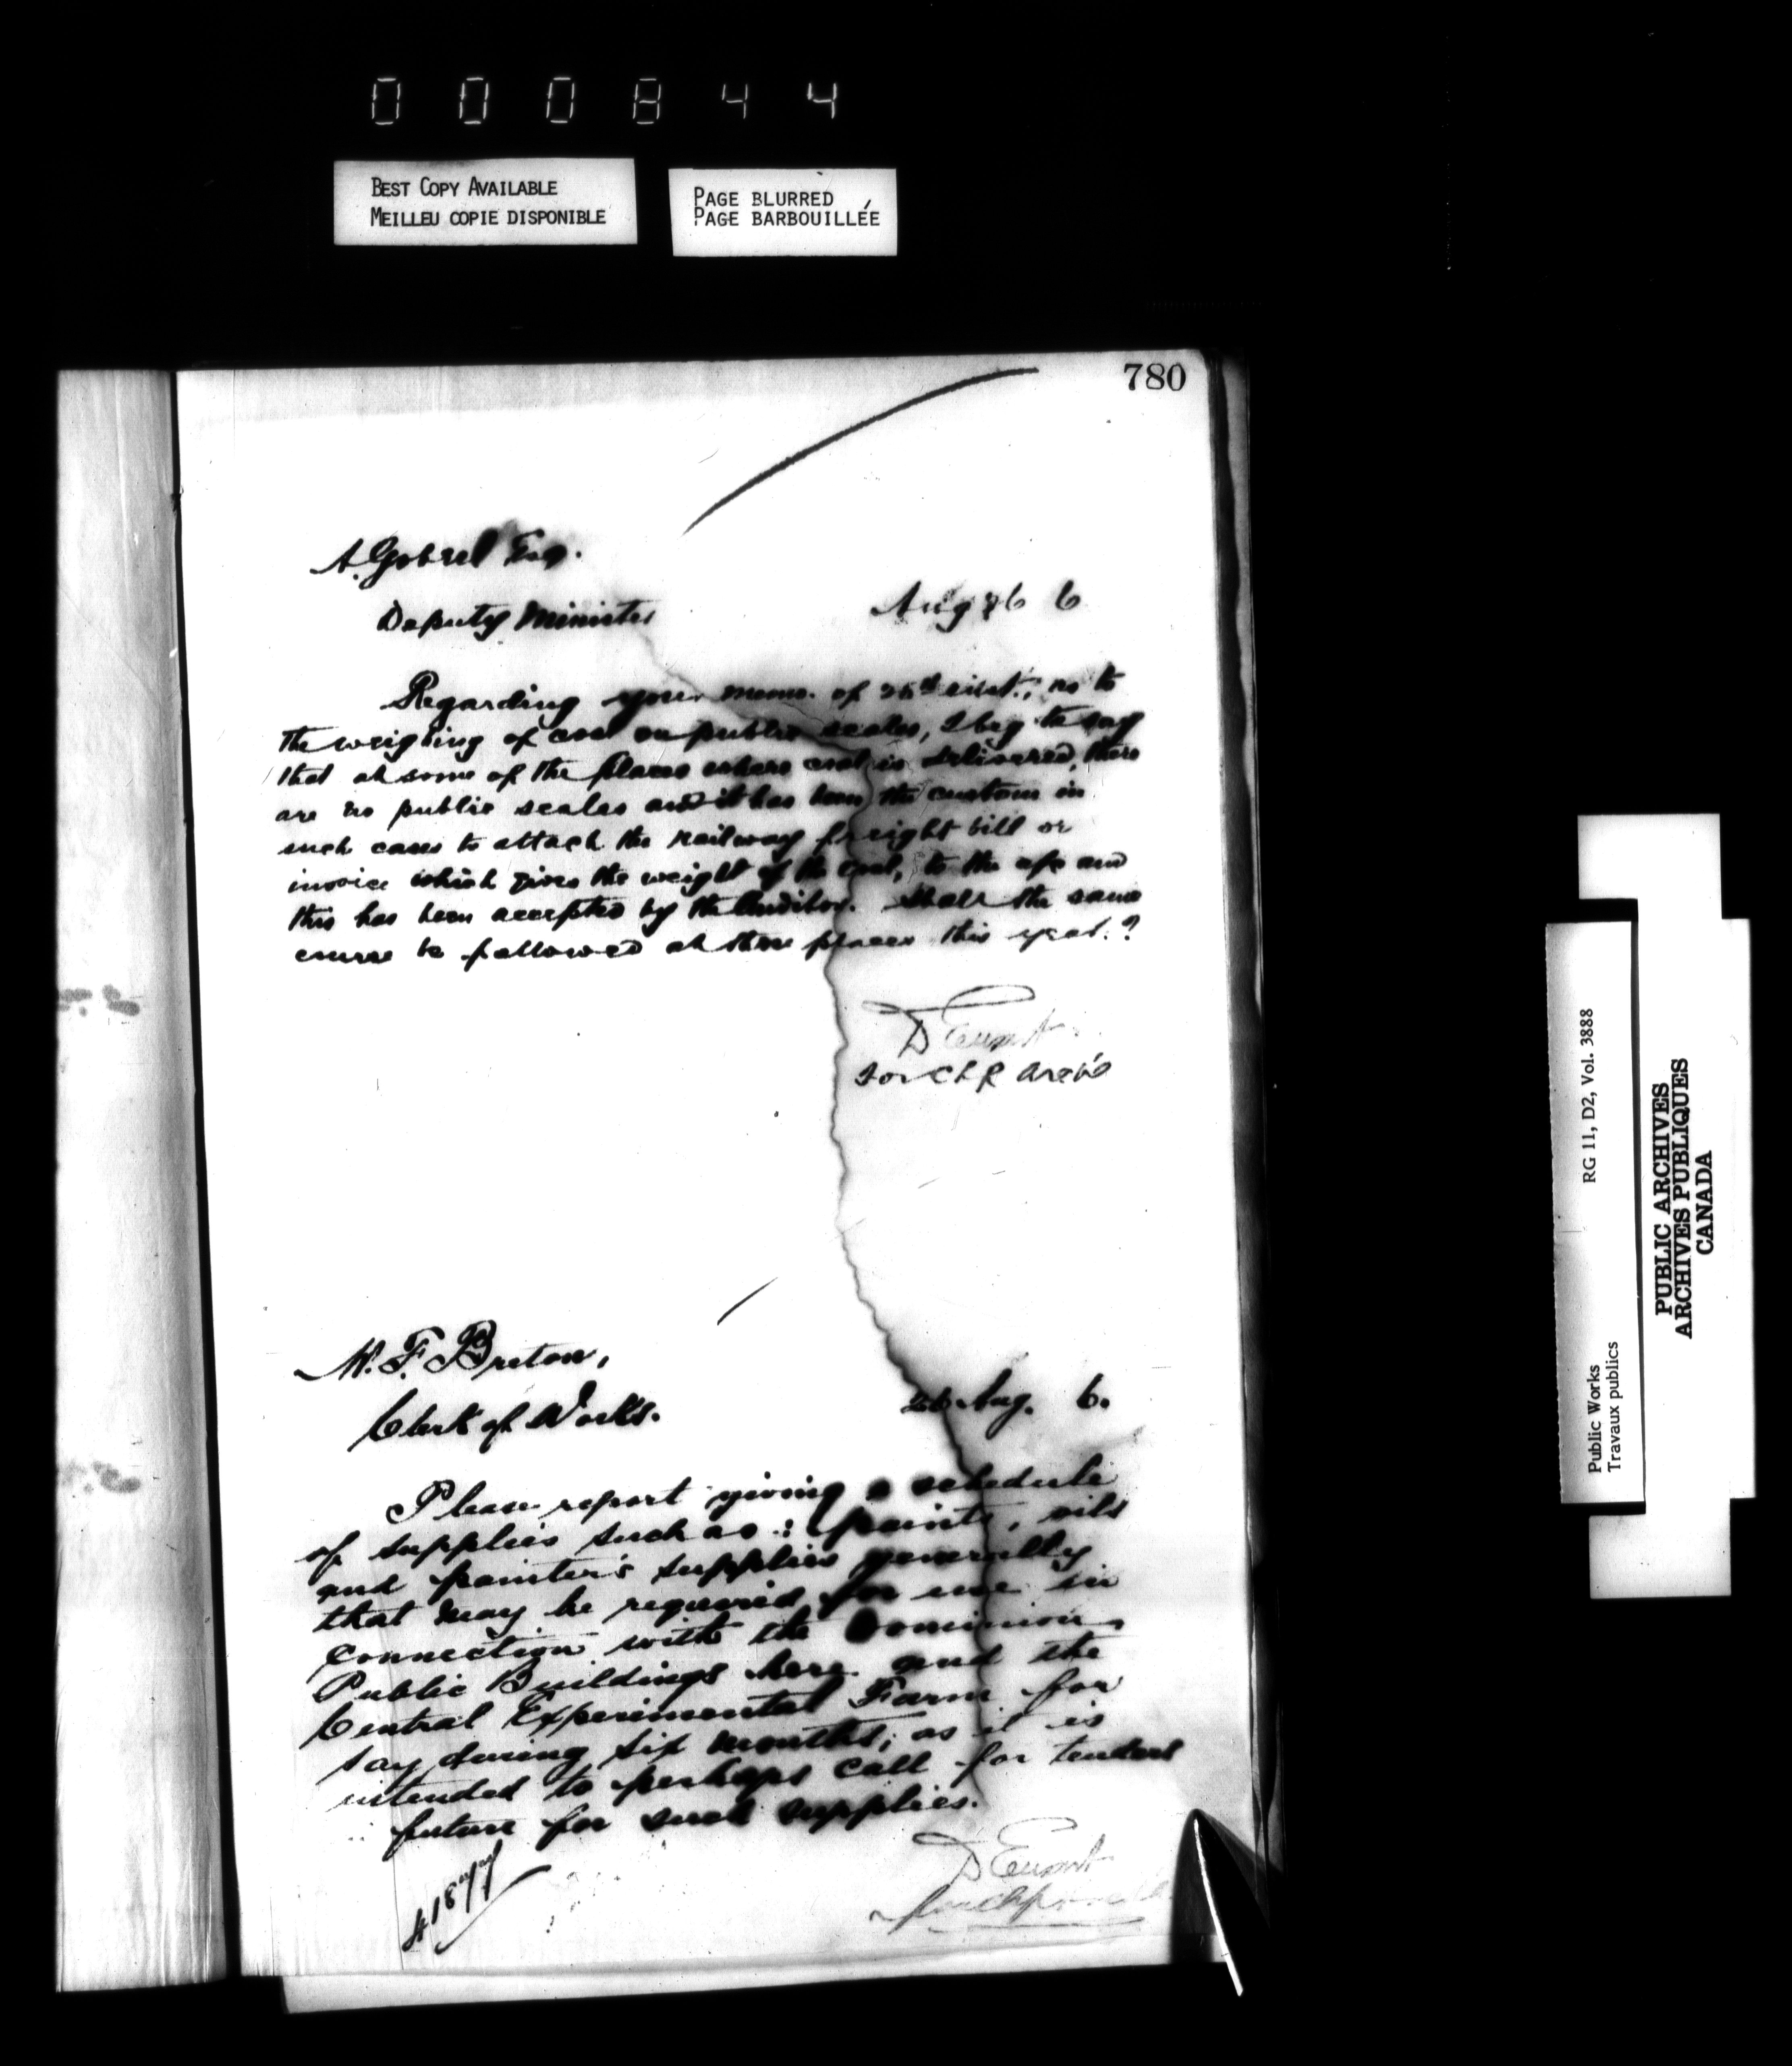 000844
BEST COPY AVAILABLE
MEILLEU COPIE DISPONIBLE
PAGE BLURRED
PAGE BARBOUILLÉE
780
A. Gobeil Esq.
Deputy Minister
Aug 26 6
Regarding your memo. of 25th inst., as to
the weighing of coal on public scales, I beg to say
that at some of the places where coal is delivered, there
are no public scales and it has been the custom in
such cases to attach the railway freight bill or
invoice which gives the weight of the coal, to the a/c and
this has been accepted by the Auditor. Shall the same
course be followed at these places this year.?
D Ewart
for Ch
M. F. Breton,
Clerk of Works.
26 Aug. 6.
Please report giving a schedule
of supplies such as: paints, oils
and painter's supplies generally
that may be required for use in
connection with the Dominion
Public Buildings here and the
Central Experimental Farm for
say during six months; as it is
intended to perhaps call for tenders
future for such supplies.
D Ewart
Public Works
Travaux publics
RG 11, D2, Vol. 3888
PUBLIC ARCHIVES
ARCHIVES PUBLIQUES
CANADA